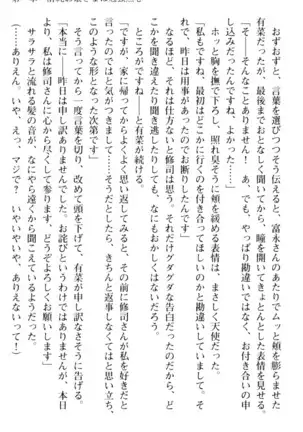 おずおずと、言葉を選びつつそう伝えると、富永さんのあたりでムッと頬を膨らませた
有菜だったが、最後までおとなしく聞いてから、瞳を開いてきょとんとした表情を見せる。
「そ――そんなことありません! あ、でも、やっぱり勘違いではなく、お付き合いの申
し込みだったんですね、よかった……」
ホッと胸を撫で下ろし、照れ臭そうに頬を緩める表情は、まさしく天使だった。
「私もですね、最初はどこかに行くのを付き合ってほしいのかと勘違いしていまして。そ
れで、昨日は用事があったもので、お断りしたんです」
なるほど、それは仕方ないと修司は思う。それだけグダグダな告白だったのだから、ど
こかを聞き違えたり聞き逃したりしても、なにもおかしくはないだろう。
ところが、と有菜が続ける。
「ですが、家に帰ってからよくよく思い返してみると、その前に修司さんが私を好きだと
言ってくださった気がしてきまして……そうだとしたら、きちんと返事しなくてはと思い立ち、
このような形となった次第です」
そう言ってから一度言葉を切り、改めて頭を下げて、有菜が申し訳なさそうに告げる。
「本当に――昨日は申し訳ありませんでした。お詫びというわけではありませんが、本日
より、修司さんに心から尽くして参ります、どうぞよろしくお願いします」
サラサラと流れる髪の音が、なにやら遠くから聞こえているようだった。
(……ありえん。いや、えっ、マジで? いやいやいや、ありえないって!)